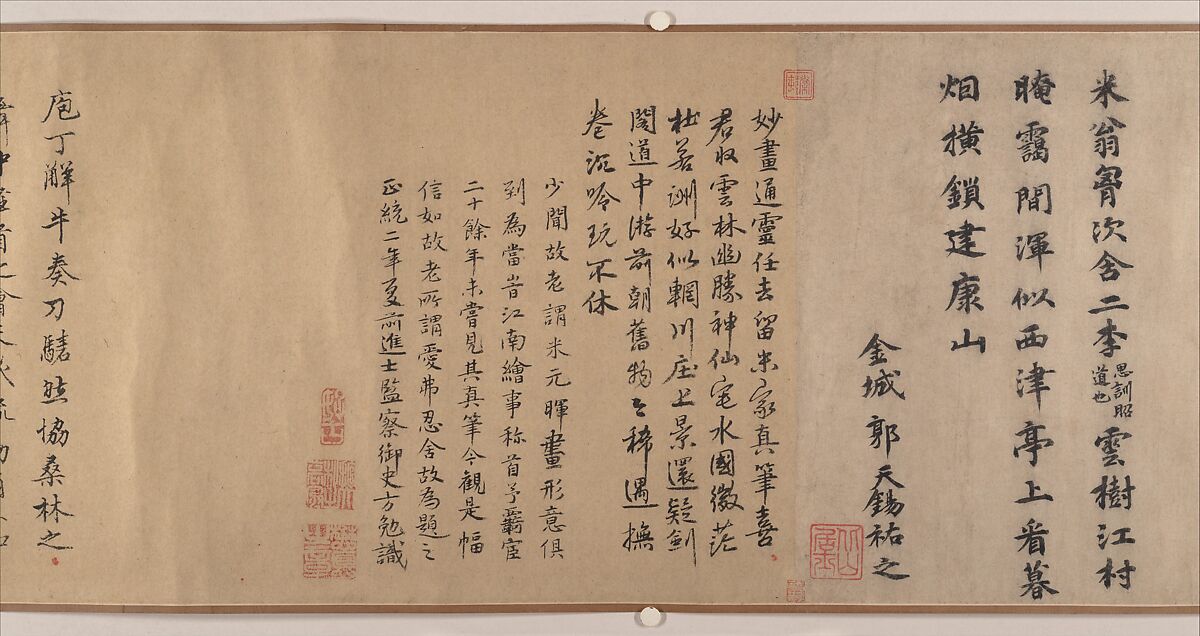 米翁胷次含二李思訓昭道也雲樹江村
晻靄間渾似西津亭上看暮
烟橫鎖建康山
金城郭天錫祐之
妙畫通靈任去留米家真筆喜
君收雲林幽勝神仙宅水國微茫
杜若洲好似輞川庄上景還疑劍
閣道中游前朝舊物今稀遇撫
卷沉吟玩不休
少聞故老謂米元暉畫形意俱
到為當旹江南繪事称首予覊宦
二十餘年未嘗見其真筆今觀是幅
信如故老所謂愛弗忍舍故為題之
正統二年夏前進士監察御史方勉識
庖丁解牛奏刀騞然協桑林之